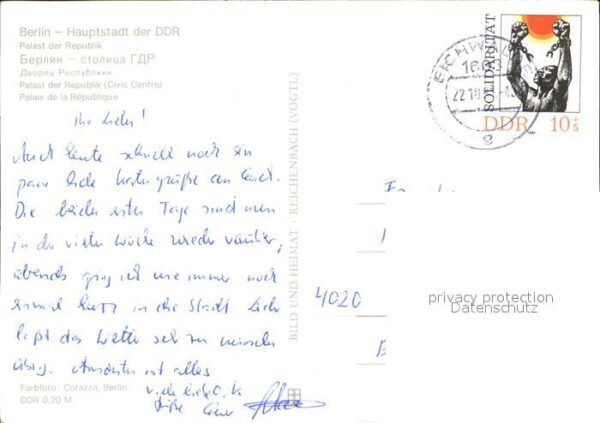 Berlin – Hauptstadt der DDR
Palast der Republik
Берлин – столица ГДР
Дворец Республики
Palast der Republik (Civic Centre)
Palais de la République
Ihr Lieben!
Auch heute schnell noch ein
paar liebe Kartengrüße an Euch.
Die beiden ersten Tage sind nun
in der vierten Woche wieder vorüber,
abends ging ich wie immer noch
einmal kurz in die Stadt. Leider
läßt das Wetter sehr zu wünschen
übrig. Ansonsten ist alles
o.k.
Viele liebe
Grüße Euer
Farbfoto: Corazza, Berlin
DDR 0,20 M
BILD UND HEIMAT · REICHENBACH (VOGTL)
EICHW
1603
22.10
e
SOLIDARITÄT
DDR 10+5
4020
privacy protection
Datenschutz